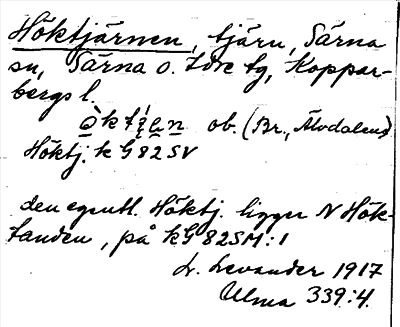 Höktjärnen, tjärn, Särna
sn, Särna o. Idre tg, Koppar-
bergs l.
ob. (Br., Älvdalens)
Höktj. k G 82 SV
den egentl. Höktj. ligger N Hök-
tanden, på kG 82SM:1
L. Levander 1917
Ulma 339:4.